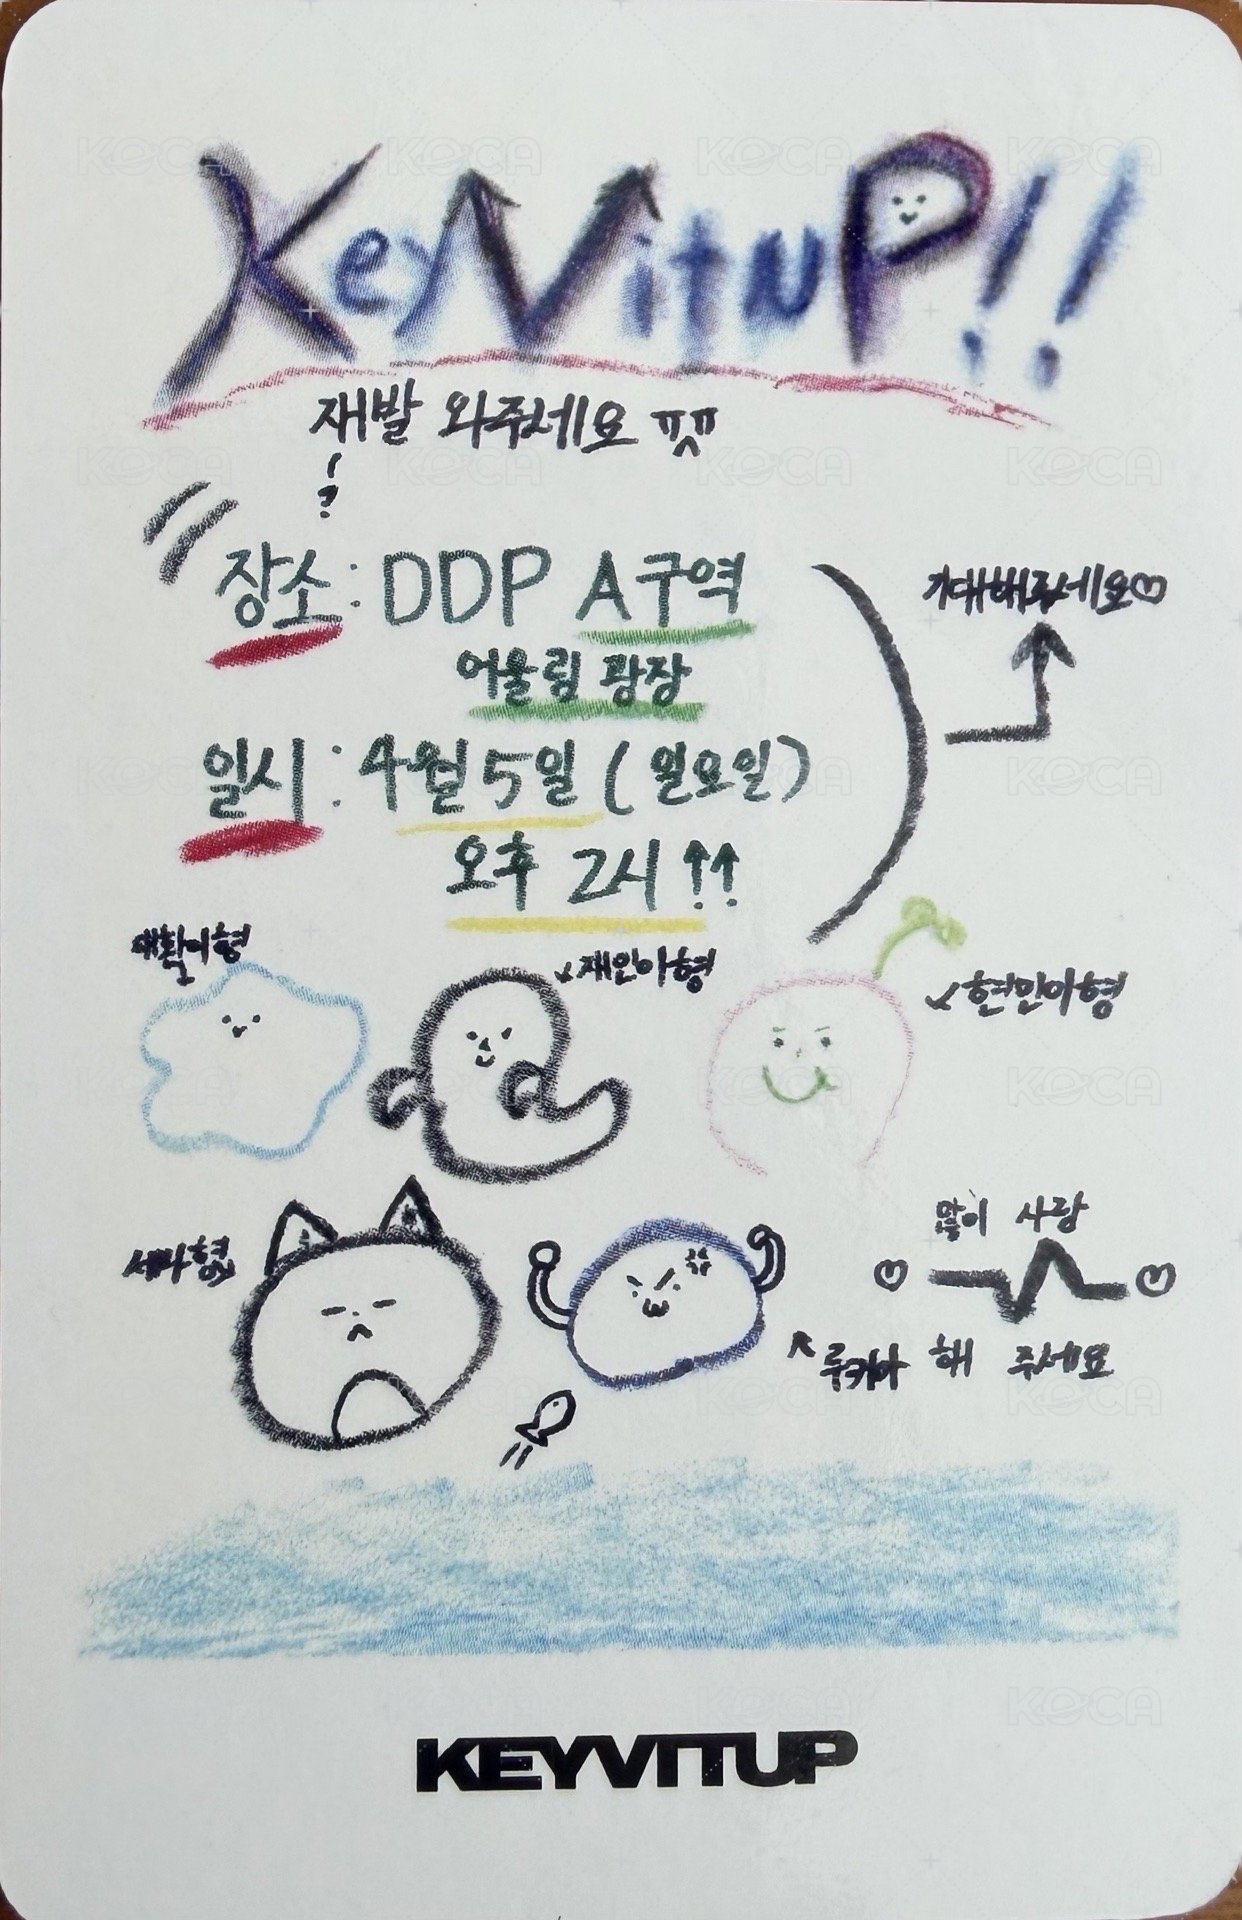 KeyVituP!!
재발 와주세요 ㅠㅅㅠ
?
장소: DDP A구역
어울림 광장
기대해주세요♡
일시: 4월 5일 (일요일)
오후 2시!!
재인이형
현민이형
세나형
많이 사랑
루키아
해 주세요
KEYVITUP
KOCA